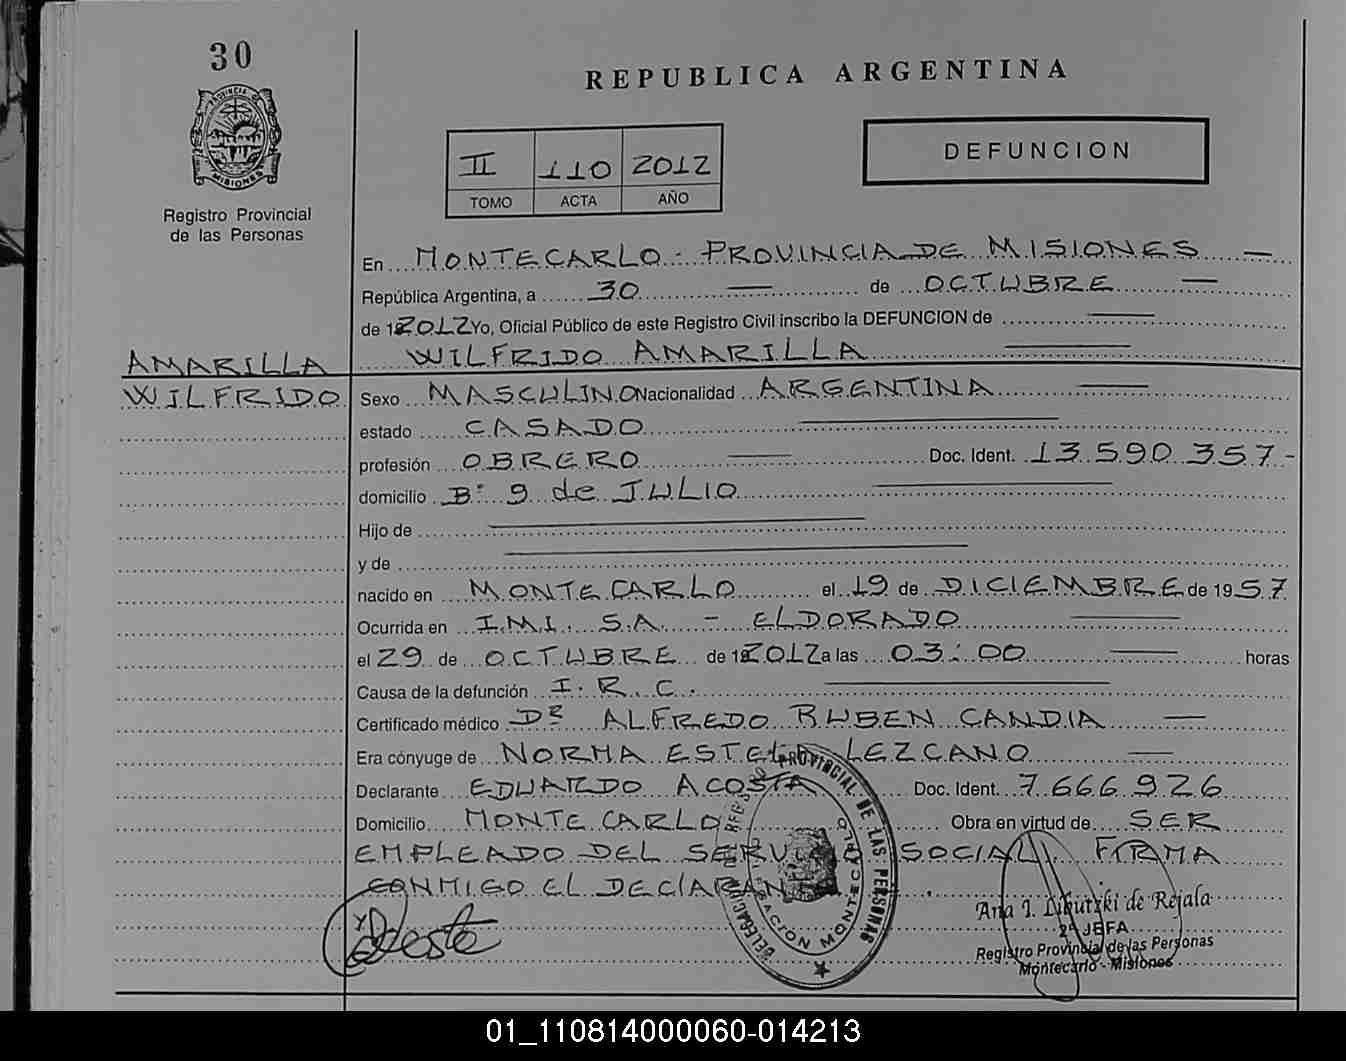 30
REPUBLICA ARGENTINA
PROVINCIA DE
MISIONES
Registro Provincial
de las Personas
II 110 2012
TOMO ACTA AÑO
DEFUNCION
En MONTECARLO - PROVINCIA DE MISIONES
República Argentina, a 30 de OCTUBRE
de 2012 Yo, Oficial Público de este Registro Civil inscribo la DEFUNCION de
AMARILLA WILFRIDO AMARILLA
WILFRIDO Sexo MASCULINO Nacionalidad ARGENTINA
estado CASADO
profesión OBRERO Doc. Ident. 13.590.357-
domicilio Bº 9 de JULIO
Hijo de
y de
nacido en MONTECARLO el 19 de DICIEMBRE de 1957
Ocurrida en I.M.I. S.A. - ELDORADO
el 29 de OCTUBRE de 2012 a las 03:00 horas
Causa de la defunción I.R.C.
Certificado médico Dr ALFREDO RUBEN CANDIA
Era cónyuge de NORMA ESTELA LEZCANO
Declarante EDUARDO ACOSTA Doc. Ident. 7.666.926
Domicilio MONTECARLO Obra en virtud de SER
EMPLEADO DEL SERVICIO SOCIAL. FIRMA
CONMIGO EL DECLARANTE.
PROVINCIAL DE LAS PERSONAS
DELEGACION MONTECARLO
Ana I. de Rejala
2º JEFA
Registro Provincial de las Personas
Montecarlo - Misiones
01_110814000060-014213